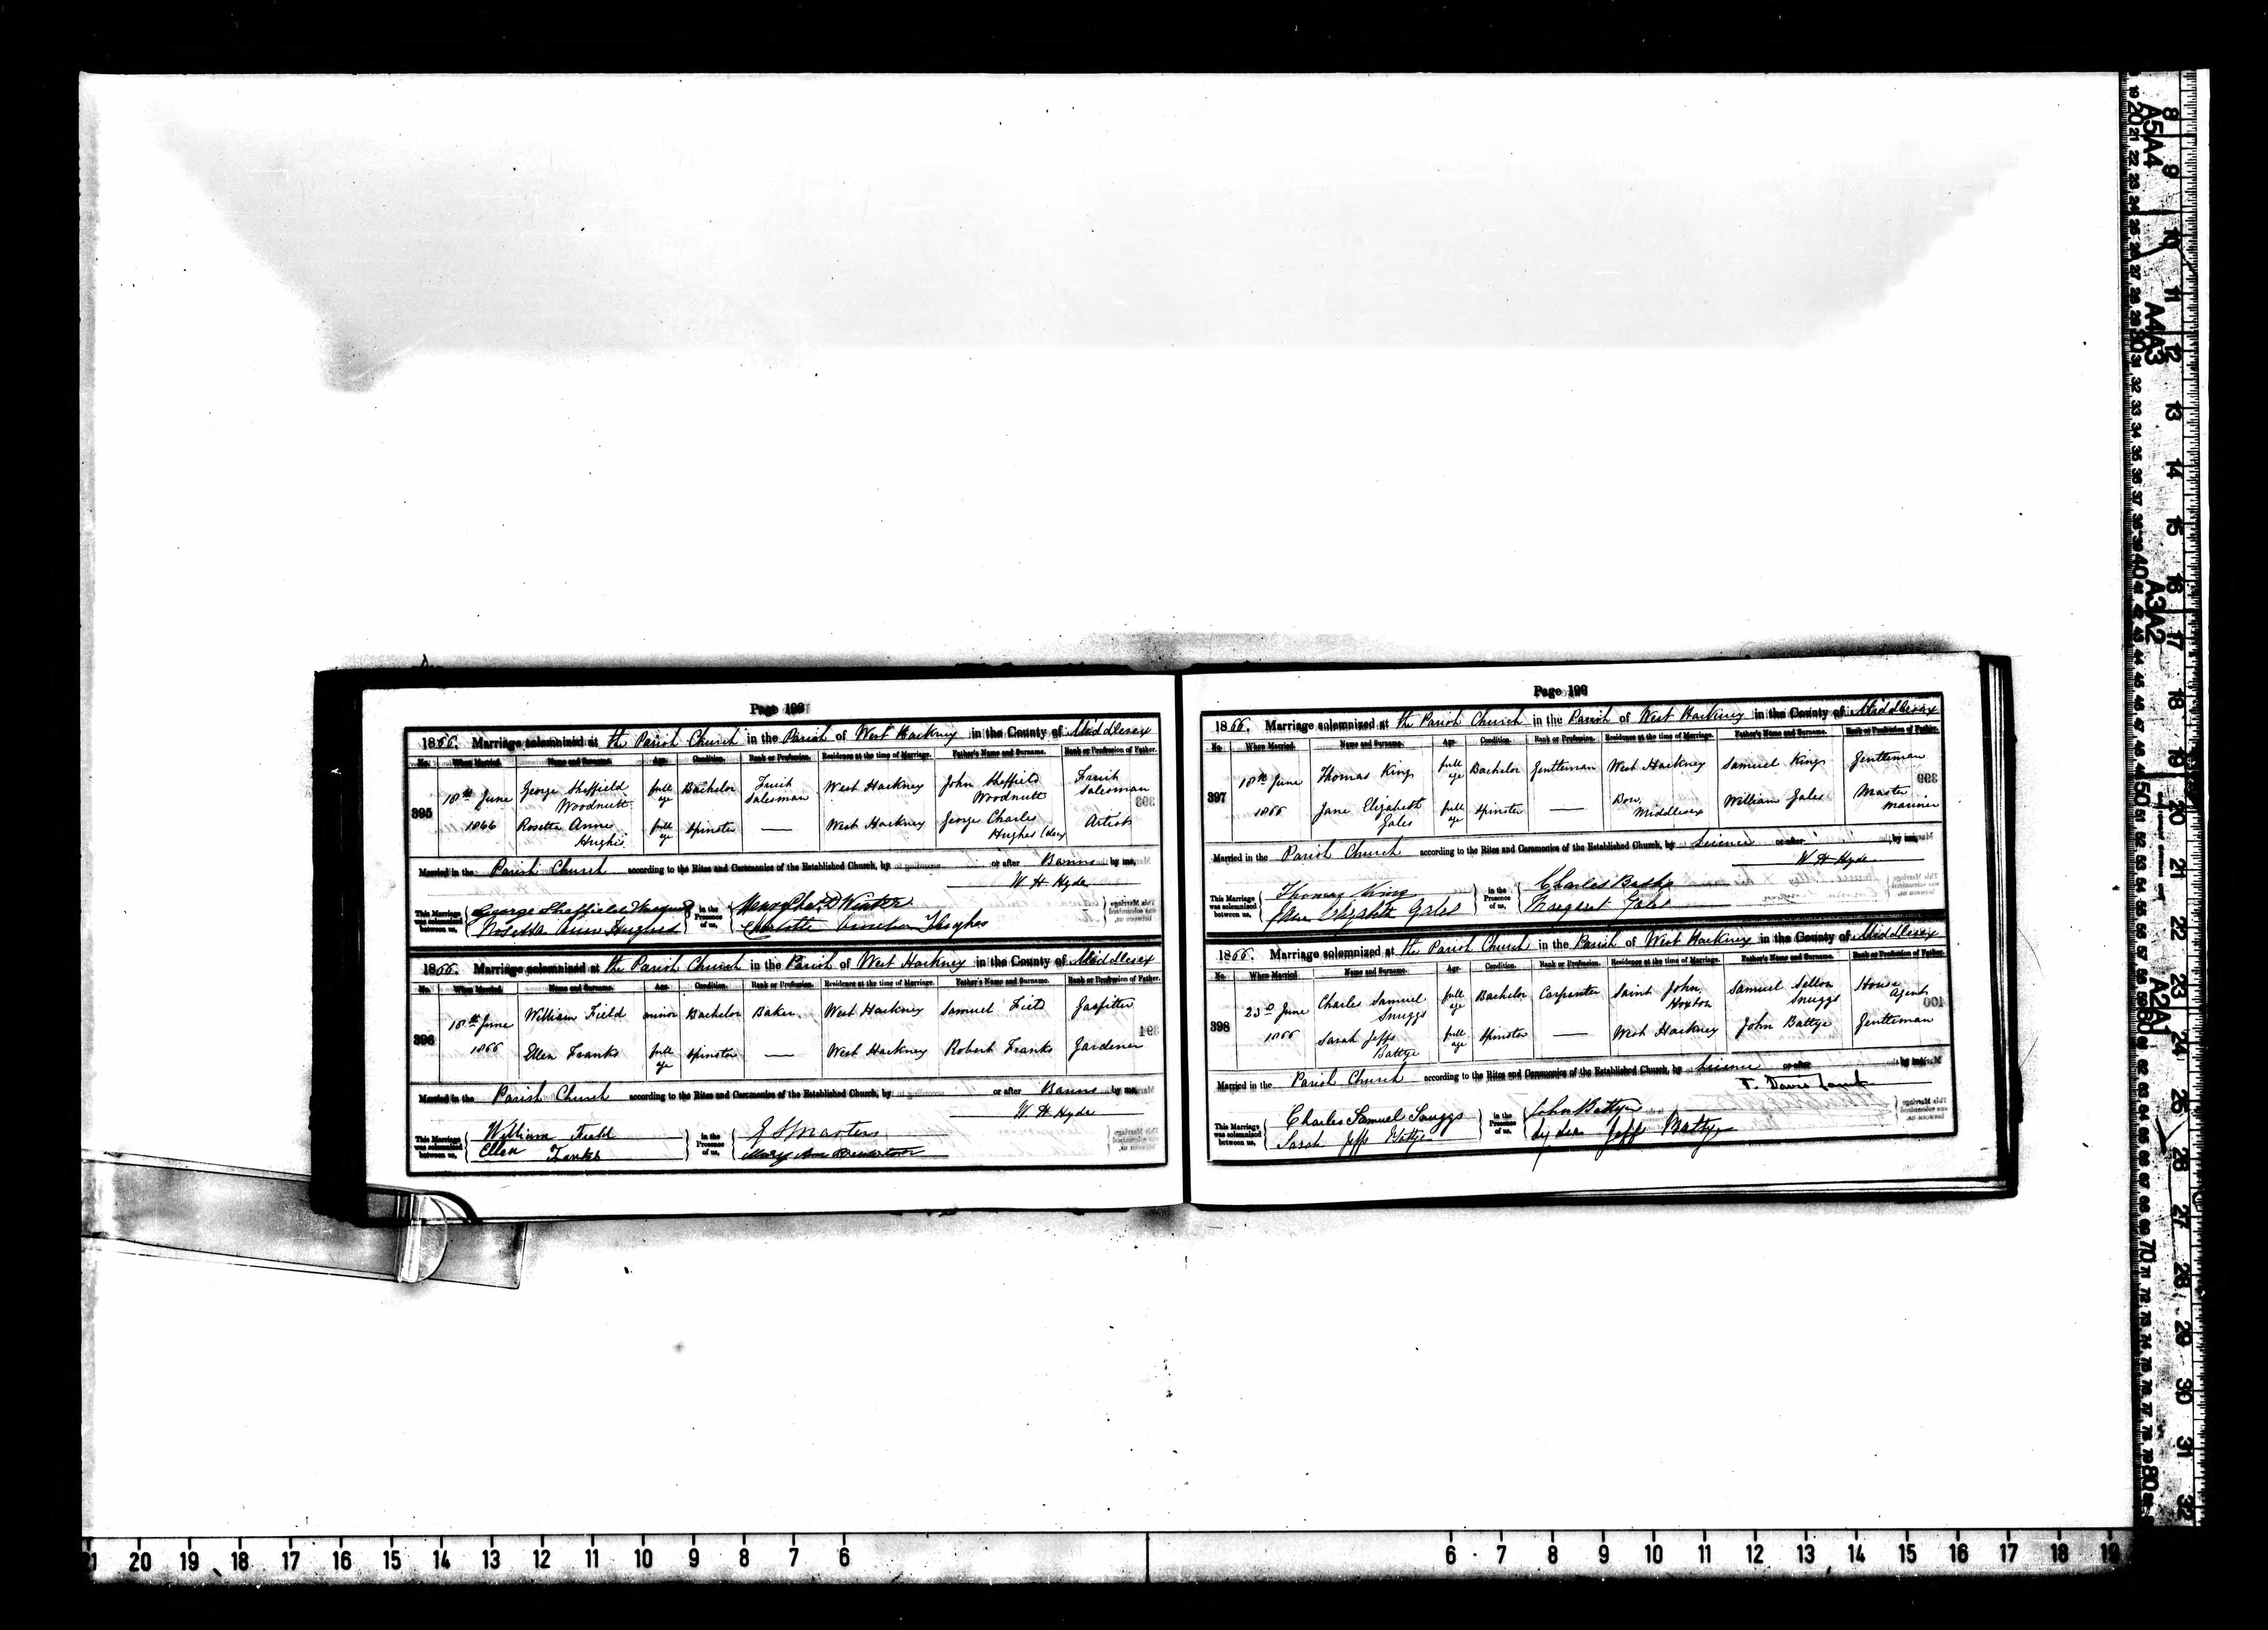 Page 198
1866. Marriage solemnized at the Parish Church in the Parish of West Hackney in the County of Middlesex
No. When Married. Name and Surname. Age. Condition. Rank or Profession. Residence at the time of Marriage. Father's Name and Surname. Rank or Profession of Father.
395 18th June 1866 George Sheffield Woodnutt full age Bachelor Fruit Salesman West Hackney John Sheffield Woodnutt Fruit Salesman
Rosetta Anne Hughes full age Spinster — West Hackney George Charles Hughes (dec) Artist
Married in the Parish Church according to the Rites and Ceremonies of the Established Church, by or after Banns by me,
W H Hyde
This Marriage was solemnized between us, George Sheffield Rosetta Ann Hughes in the Presence of us, Charlotte Hughes
1866. Marriage solemnized at the Parish Church in the Parish of West Hackney in the County of Middlesex
No. When Married. Name and Surname. Age. Condition. Rank or Profession. Residence at the time of Marriage. Father's Name and Surname. Rank or Profession of Father.
396 18th June 1866 William Field minor Bachelor Baker West Hackney Samuel Field Gasfitter
Ellen Franks full age Spinster — West Hackney Robert Franks Gardener
Married in the Parish Church according to the Rites and Ceremonies of the Established Church, by or after Banns by me,
W H Hyde
This Marriage was solemnized between us, William Field Ellen Franks in the Presence of us, Mary Ann
Page 199
1866. Marriage solemnized at the Parish Church in the Parish of West Hackney in the County of Middlesex
No. When Married. Name and Surname. Age. Condition. Rank or Profession. Residence at the time of Marriage. Father's Name and Surname. Rank or Profession of Father.
397 18th June 1866 Thomas King full age Bachelor Gentleman West Hackney Samuel King Gentleman
Jane Elizabeth Gales full age Spinster — Bow, Middlesex William Gales Master Mariner
Married in the Parish Church according to the Rites and Ceremonies of the Established Church, by Licence or after by me,
W H Hyde
This Marriage was solemnized between us, Thomas King Jane Elizabeth Gales in the Presence of us, Charles Margaret Gales
1866. Marriage solemnized at the Parish Church in the Parish of West Hackney in the County of Middlesex
No. When Married. Name and Surname. Age. Condition. Rank or Profession. Residence at the time of Marriage. Father's Name and Surname. Rank or Profession of Father.
398 23d June 1866 Charles Samuel Snuggs full age Bachelor Carpenter Saint John, Hoxton Samuel Snuggs House Agent
Sarah Jeffs Battye full age Spinster — West Hackney John Battye Gentleman
Married in the Parish Church according to the Rites and Ceremonies of the Established Church, by Licence or after by me,
T. Davis Lamb
This Marriage was solemnized between us, Charles Samuel Snuggs Sarah Jeffs Battye in the Presence of us, John Battye Jeffs Battye
21 20 19 18 17 16 15 14 13 12 11 10 9 8 7 6 6 7 8 9 10 11 12 13 14 15 16 17 18 19